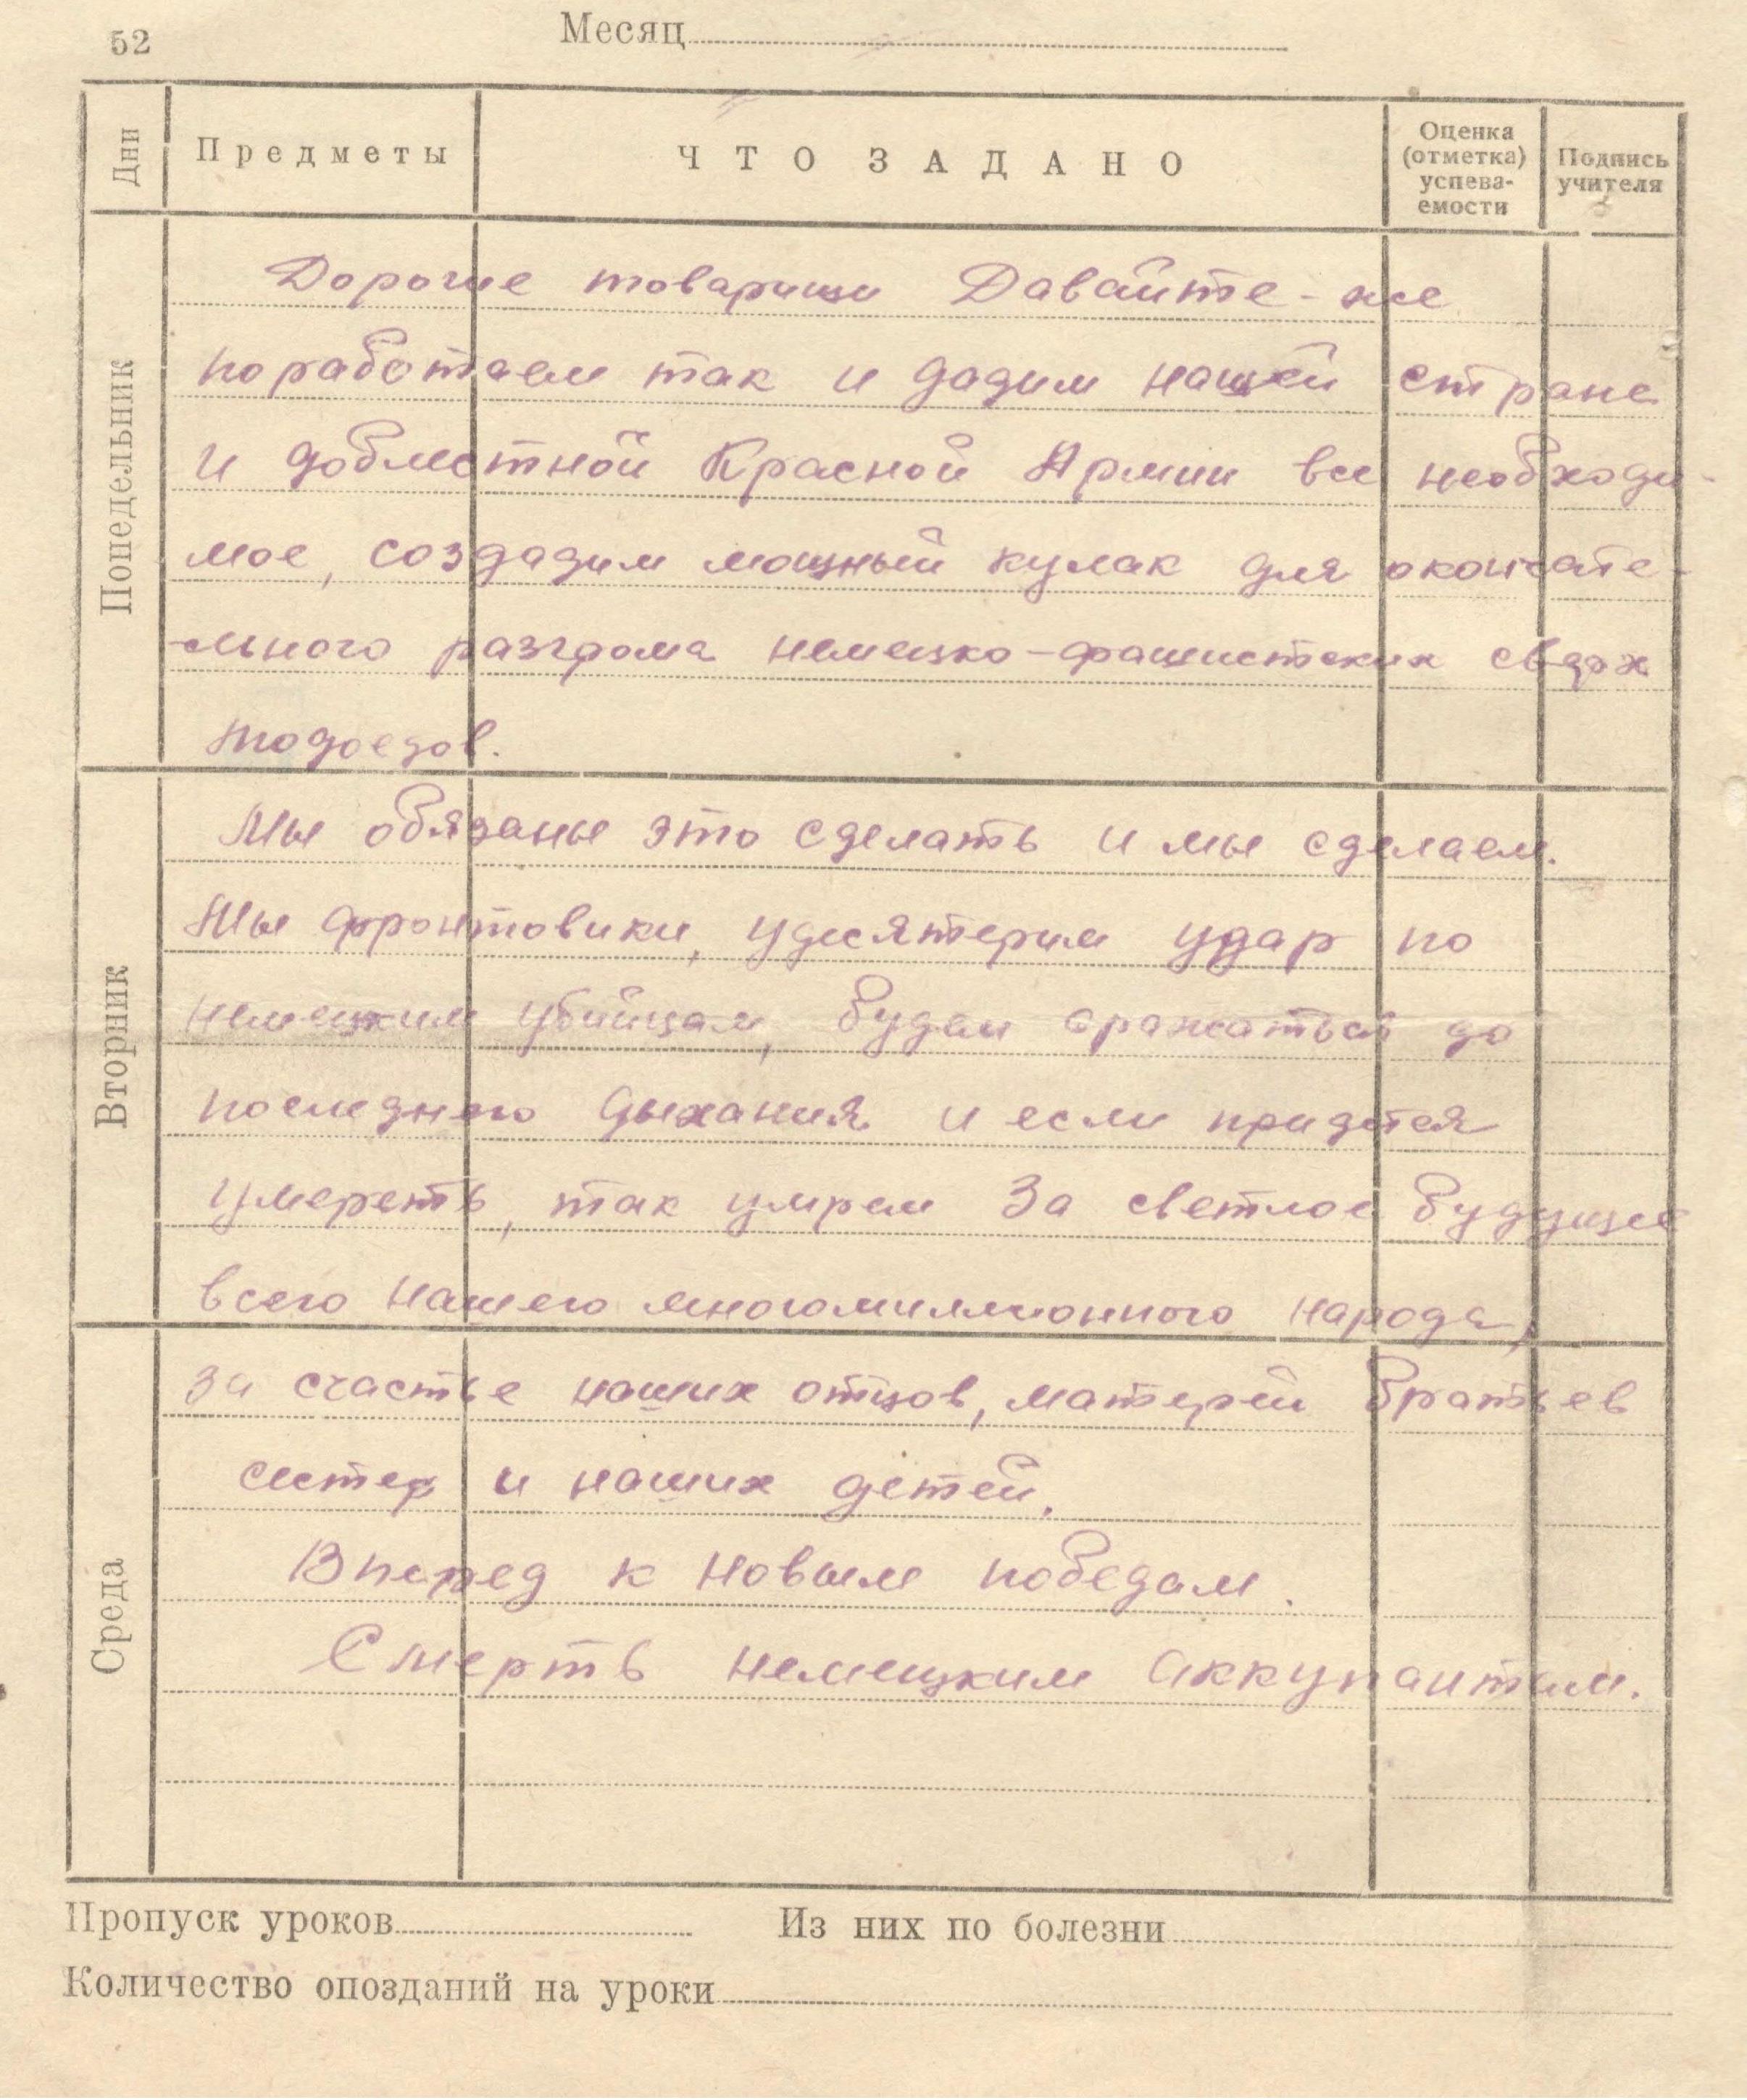 52
Месяц
Дни
Предметы
ЧТО ЗАДАНО
Оценка
(отметка)
успева-
емости
Подпись
учителя
Понедельник
Дорогие товарищи Давайте-же
поработаем так и дадим нашей стране
и доблестной Красной Армии все необходи-
мое, создадим мощный кулак для окончате-
-льного разгрома немецко-фашистских
людоедов.
Вторник
Мы обязаны это сделать и мы сделаем.
Мы фронтовики, удесятерим удар по
немецким убийцам, будем сражаться до
последнего дыхания и если придется
умереть, так умрем за светлое будущее
всего нашего многомиллионного народа,
Среда
за счастье наших отцов, матерей братьев
сестер и наших детей.
Вперед к новым победам.
Смерть немецким аккупантам.
Пропуск уроков
Из них по болезни
Количество опозданий на уроки